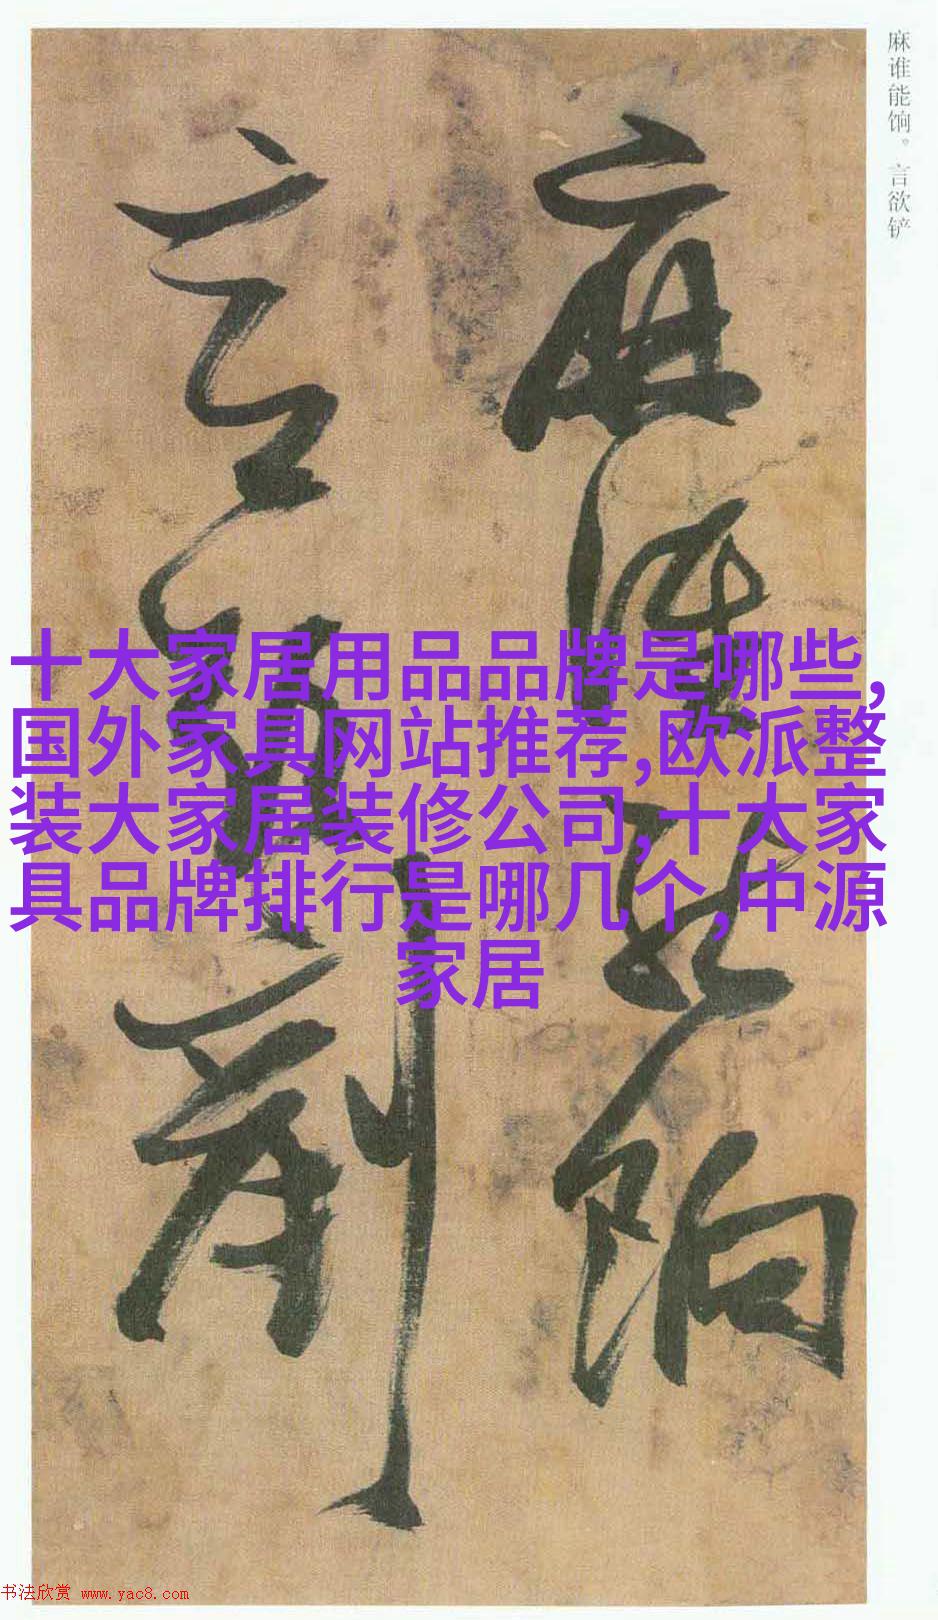 麻谁能饷。言欲铲
麻谁能饷
言欲铲
十大家居用品品牌是哪些,
国外家具网站推荐,欧派整
装大家居装修公司,十大家
具品牌排行是哪几个,中源
家居
书法欣赏 www.yac8.com